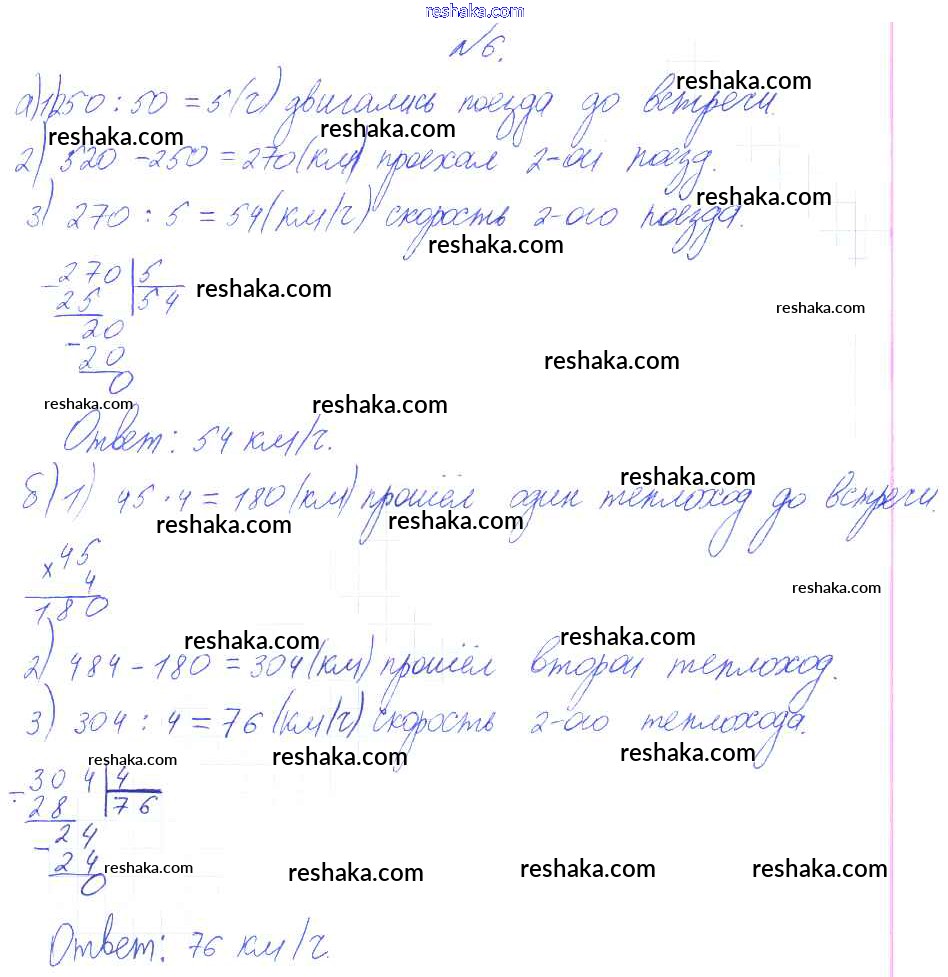 reshaka.com
№6.
reshaka.com
а) 1) 250 : 50 = 5 (ч) двигались поезда до встречи.
reshaka.com reshaka.com
2) 520 - 250 = 270 (км) проехал 2-ой поезд.
reshaka.com
3) 270 : 5 = 54 (км/ч) скорость 2-ого поезда.
reshaka.com
- 270 | 5
25 | 54
reshaka.com
reshaka.com
- 20
20
0
reshaka.com
reshaka.com reshaka.com
Ответ: 54 км/ч.
reshaka.com
б) 1) 45 · 4 = 180 (км) прошёл один теплоход до встречи.
reshaka.com reshaka.com
× 45
4
180
reshaka.com
reshaka.com reshaka.com
2) 484 - 180 = 304 (км) прошёл второй теплоход.
3) 304 : 4 = 76 (км/ч) скорость 2-ого теплохода.
reshaka.com reshaka.com reshaka.com
- 304 | 4
28 | 76
- 24
24
0
reshaka.com reshaka.com reshaka.com reshaka.com
Ответ: 76 км/ч.